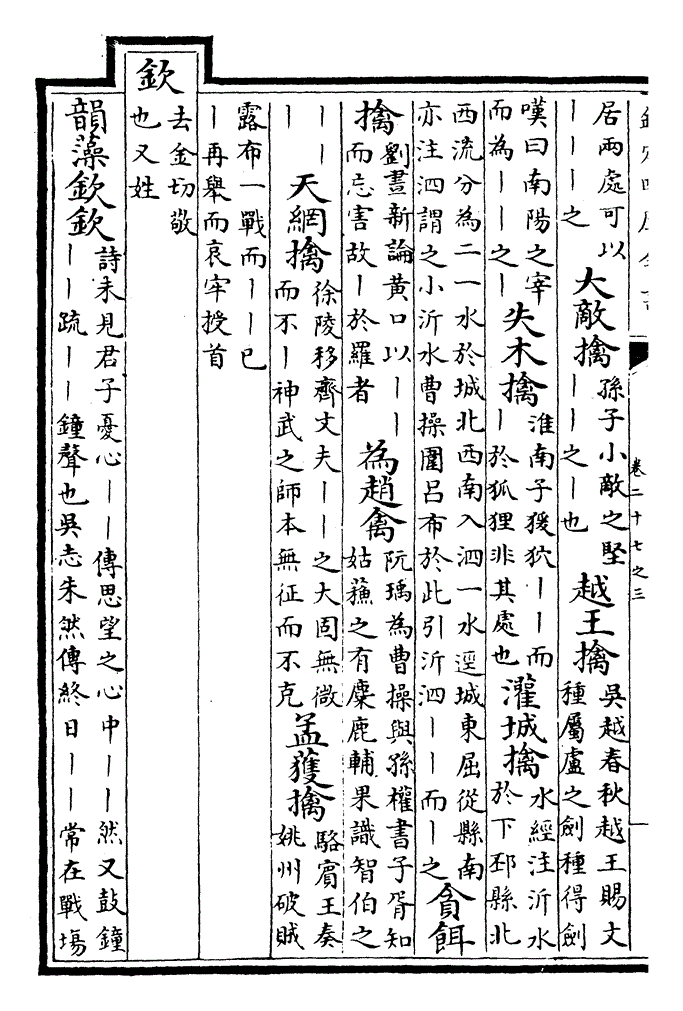 欽定四庫全書
卷二十七之三
居兩處可以
｜｜｜之
大敵擒
孫子小敵之堅
｜｜｜之｜也
越王擒
吳越春秋越王賜文
種屬盧之劍種得劍
嘆曰南陽之宰
而為｜｜之｜
失木擒
淮南子猨狖｜｜而
｜於狐狸非其處也
灌城擒
水經注沂水
於下邳縣北
西流分為二一水於城北西南入泗一水逕城東屈從縣南
亦注泗謂之小沂水曹操圍呂布於此引沂泗｜｜而｜之
貪餌
擒
劉晝新論黃口以｜｜
而忘害故｜於羅者
為趙禽
阮瑀為曹操與孫權書子胥知
姑蘇之有麋鹿輔果識智伯之
｜｜
｜
天網擒
徐陵移齊文夫｜｜之大固無微
而不｜神武之師本無征而不克
孟獲擒
駱賓王奏
姚州破賊
露布一戰而｜｜已
｜再舉而哀牢授首
欽
去金切敬
也又姓
韻藻欽欽
詩未見君子憂心｜｜傳思望之心中｜｜然又鼓鐘
｜｜疏｜｜鐘聲也吳志朱然傳終日｜｜常在戰場